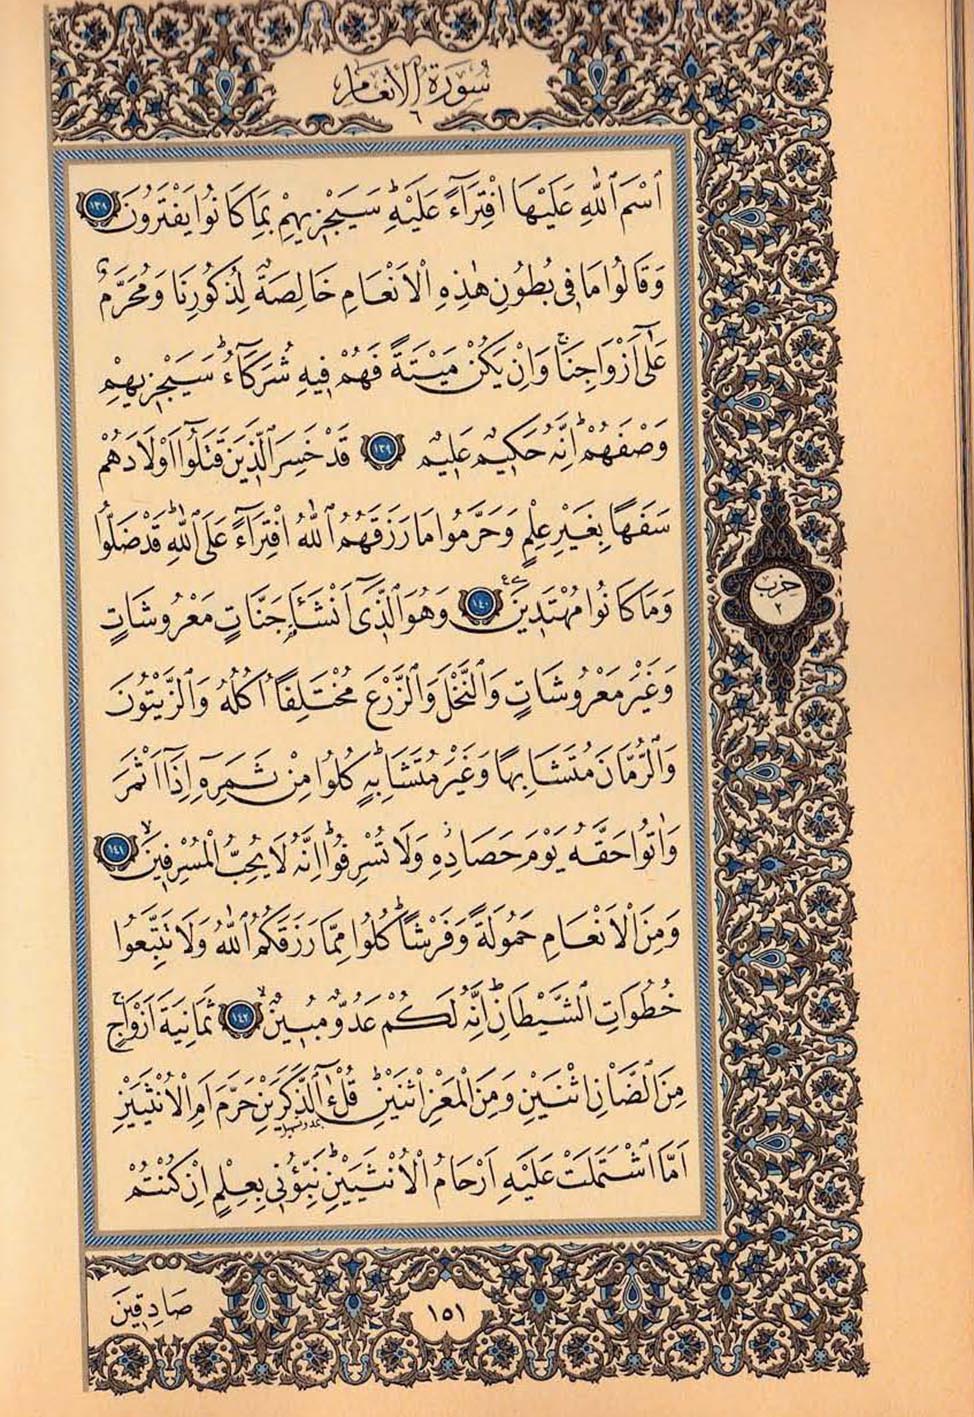 سُورَةُ الْأَنْعَامِ
٦
اسْمَ اللّٰهِ عَلَيْهَا افْتِرَآءً عَلَيْهِۜ سَيَجْزٖيهِمْ بِمَا كَانُوا يَفْتَرُونَ ﴿١٣٨﴾
وَقَالُوا مَا فٖى بُطُونِ هٰذِهِ الْاَنْعَامِ خَالِصَةٌ لِذُكُورِنَا وَمُحَرَّمٌ
عَلٰٓى اَزْوَاجِنَاۚ وَاِنْ يَكُنْ مَيْتَةً فَهُمْ فٖيهِ شُرَكَآءُۜ سَيَجْزٖيهِمْ
وَصْفَهُمْۜ اِنَّهُ حَكٖيمٌ عَلٖيمٌ ﴿١٣٩﴾ قَدْ خَسِرَ الَّذٖينَ قَتَلُٓوا اَوْلَادَهُمْ
سَفَهًا بِغَيْرِ عِلْمٍ وَحَرَّمُوا مَا رَزَقَهُمُ اللّٰهُ افْتِرَآءً عَلَى اللّٰهِۜ قَدْ ضَلُّوا
وَمَا كَانُوا مُهْتَدٖينَ ﴿١٤٠﴾ وَهُوَ الَّذٖٓى اَنْشَاَ جَنَّاتٍ مَعْرُوشَاتٍ
وَغَيْرَ مَعْرُوشَاتٍ وَالنَّخْلَ وَالزَّرْعَ مُخْتَلِفًا اُكُلُهُ وَالزَّيْتُونَ
وَالرُّمَّانَ مُتَشَابِهًا وَغَيْرَ مُتَشَابِهٍۜ كُلُوا مِنْ ثَمَرِهٖٓ اِذَٓا اَثْمَرَ
وَاٰتُوا حَقَّهُ يَوْمَ حَصَادِهٖ وَلَا تُسْرِفُواۜ اِنَّهُ لَا يُحِبُّ الْمُسْرِفٖينَۙ ﴿١٤١﴾
وَمِنَ الْاَنْعَامِ حَمُولَةً وَفَرْشًاۜ كُلُوا مِمَّا رَزَقَكُمُ اللّٰهُ وَلَا تَتَّبِعُوا
خُطُوَاتِ الشَّيْطَانِۜ اِنَّهُ لَكُمْ عَدُوٌّ مُبٖينٌۙ ﴿١٤٢﴾ ثَمَانِيَةَ اَزْوَاجٍۚ
مِنَ الضَّاْنِ اثْنَيْنِ وَمِنَ الْمَعْزِ اثْنَيْنِۜ قُلْ ءٰٓالذَّكَرَيْنِ حَرَّمَ اَمِ الْاُنْثَيَيْنِ
اَمَّا اشْتَمَلَتْ عَلَيْهِ اَرْحَامُ الْاُنْثَيَيْنِۜ نَبِّؤُ۫نٖى بِعِلْمٍ اِنْ كُنْتُمْ
صَادِقٖينَ
١٥١
حزب
٢